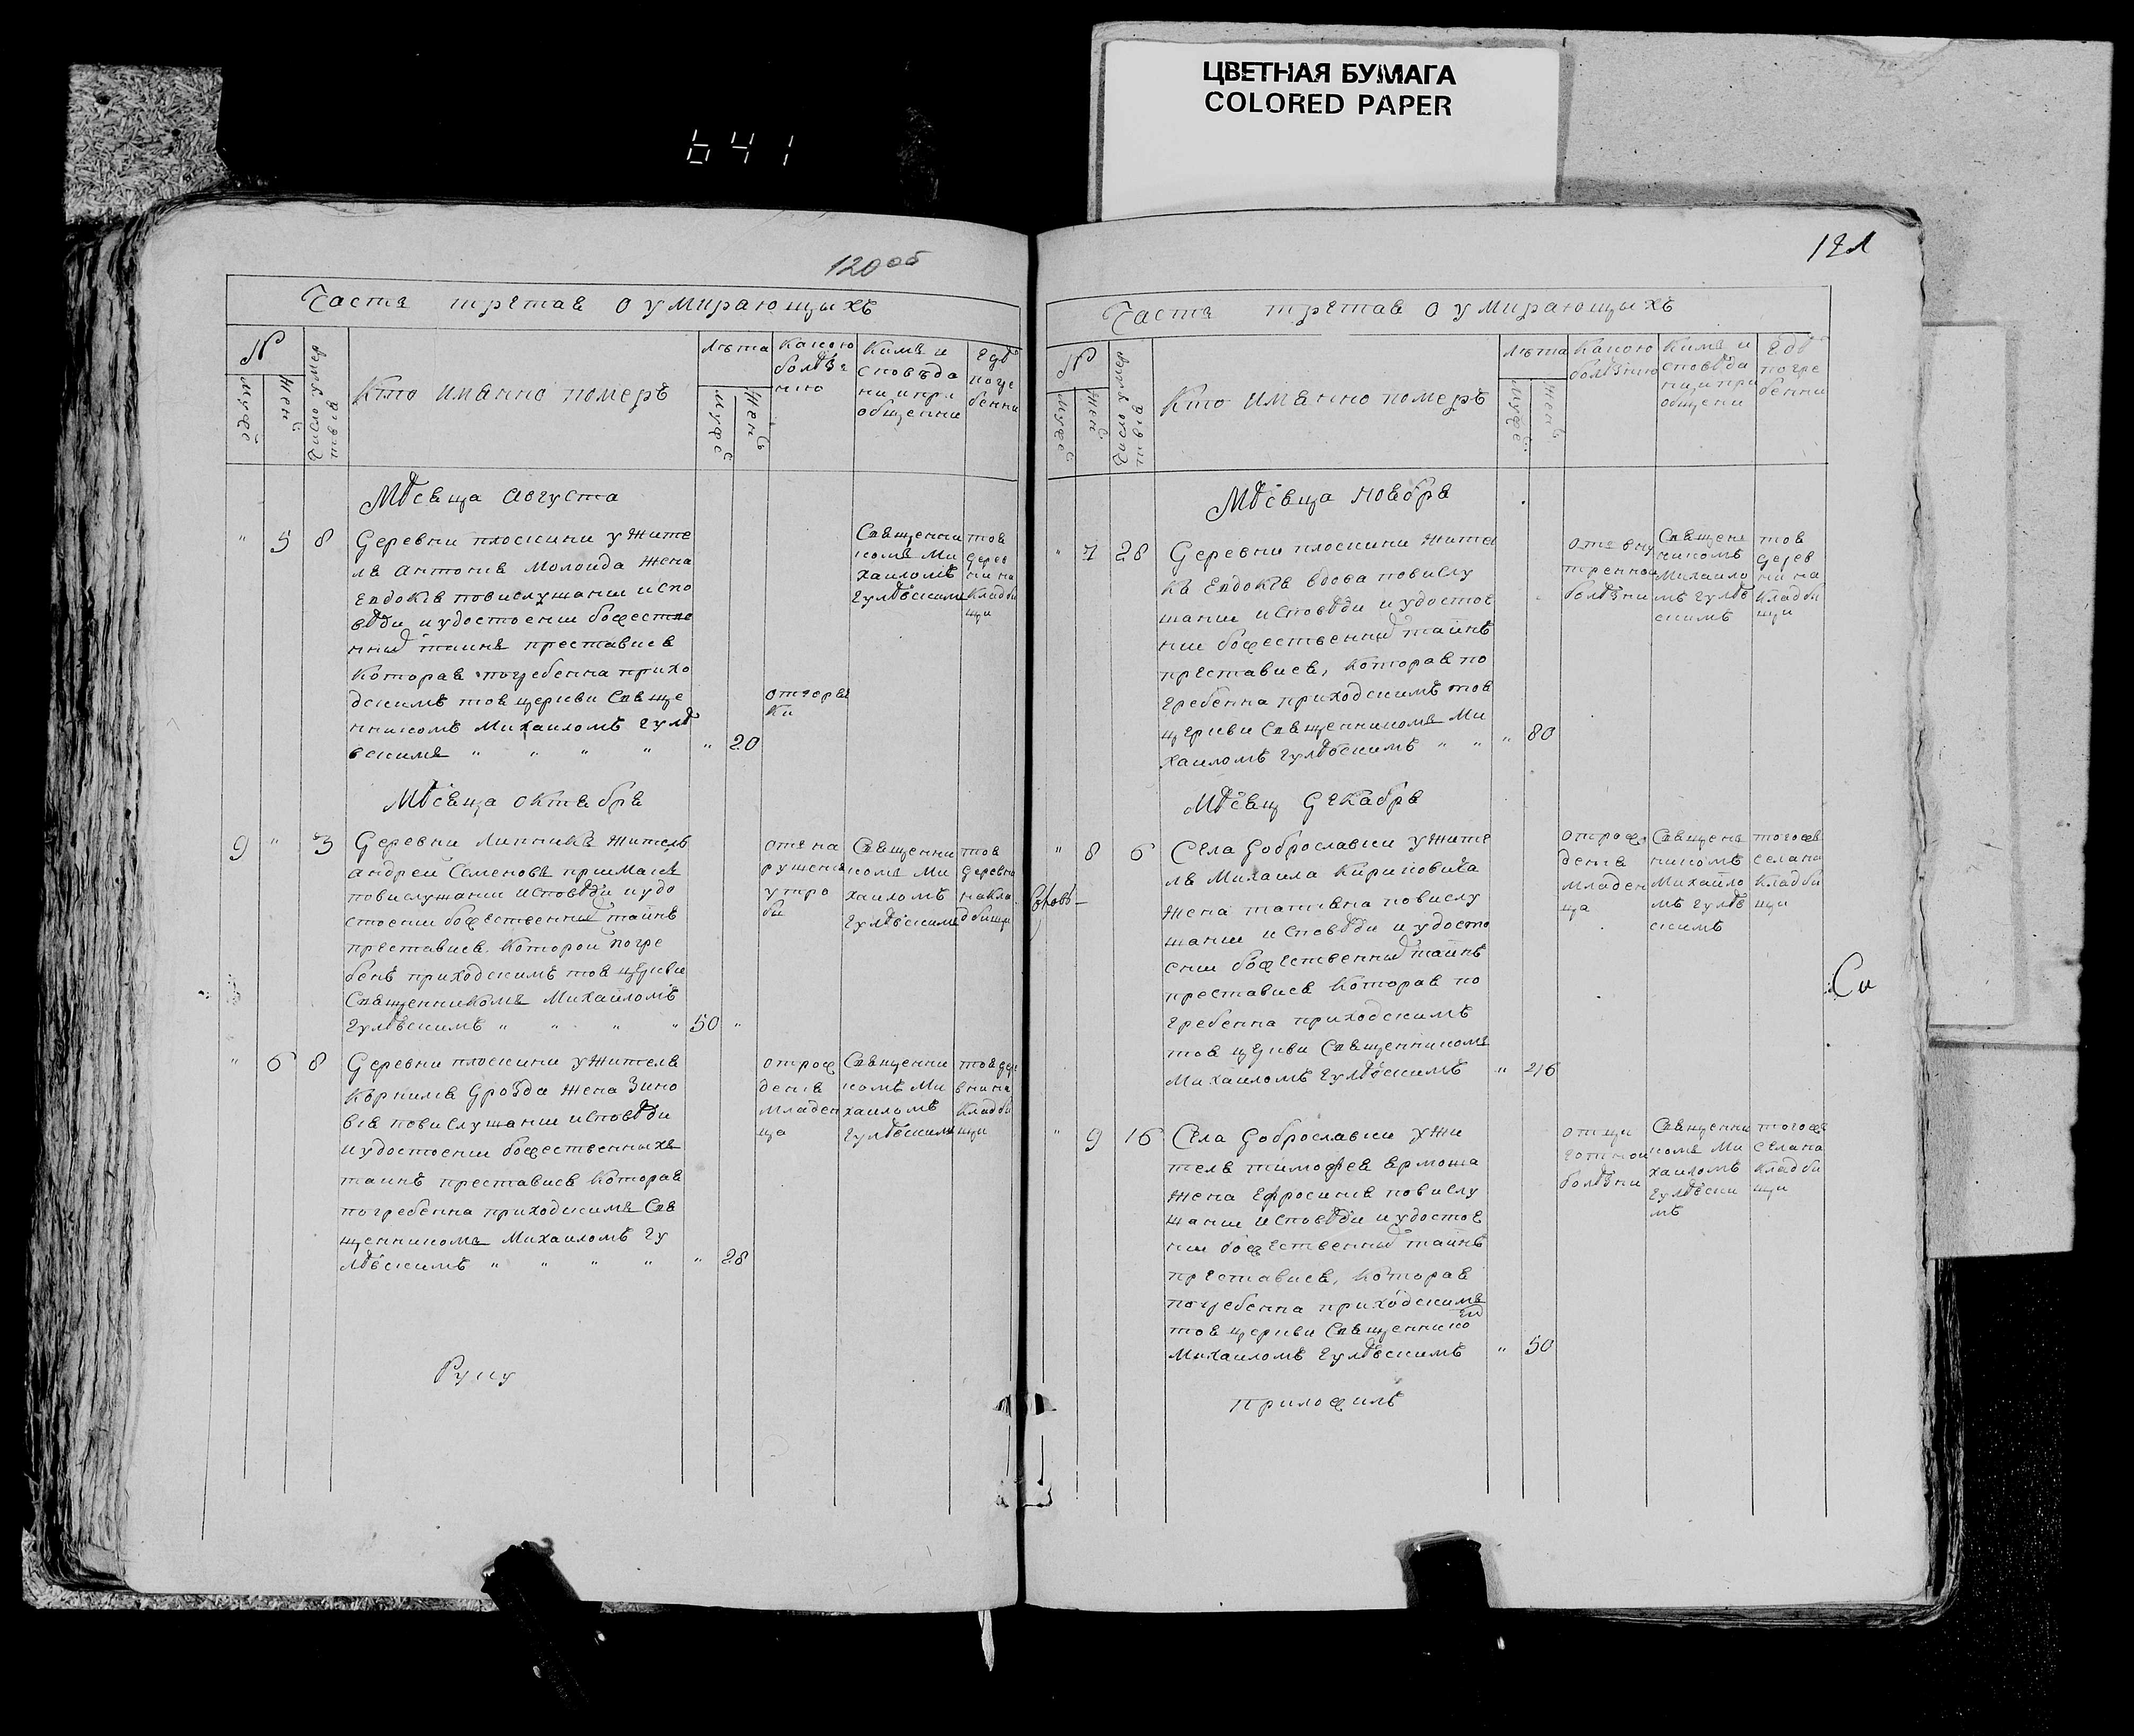 ЦВЕТНАЯ БУМАГА
COLORED PAPER
641
120 об
Часть третая о умирающыхъ
№
Кто имянно померъ
Лѣта
Какою
болѣз
нию
Кимъ и
сповѣда
ни и при
общенни
Где
погре
бенни
Муже
Жен
Число умер
твія
Муж
Жен
Мѣсяца Августа
" 5 8
Деревни плоскини ужите
ля Антонія Молоида жена
Евдокія повислушании испо
вѣди и удостоении божестве
нныхъ таинъ преставися
которая погребенна прихо
дскимъ тоя церкви Свяще
нникомъ Михаиломъ Гулѣ
вскимъ " " " " " 20
отгоряч
ки
Священни
комъ Ми
хаиломъ
Гулѣвскимъ
тоя
дерев
ни на
кладби
щи
Мѣсяца октября
9 " 3
Деревни Липники житель
Андрей Семеновъ приймакъ
повислушании исповѣди и удо
стоении божественныхъ таинъ
преставися которой погре
бенъ приходскимъ тоя церкви
Священникомъ Михаиломъ
Гулѣвскимъ " " " " 50 "
отъ на
рушения
утро
би
Священни
комъ Ми
хаиломъ
Гулѣвскимъ
тоя
деревни
накла
дбищи
" 6 8
Деревни плоскини ужителя
Корнилія Дрозда жена Зино
вія повислушании исповѣди
и удостоении божественныхъ
таинъ преставися которая
погребенна приходскимъ Свя
щенникомъ Михаиломъ Гу
лѣвскимъ " " " " " 28
отрож
денія
младен
ца
Священни
комъ Ми
хаиломъ
Гулѣвскимъ
тоя дере
вни на
кладби
щи
Руку
121
Часть третая о умирающыхъ
№
Кто имянно померъ
Лѣта
Какою
болѣзнию
Кимъ и
сповѣда
ни и при
общени
Где
погре
бенни
Муже
Жен
Муже
Жен
Мѣсяца ноября
" 7 28
Деревни плоскини жител
ка Евдокія вдова повислу
шании исповѣди и удостое
нии божественныхъ таинъ
преставися, которая по
гребенна приходскимъ тоя
церкви Священникомъ Ми
хаиломъ Гулѣвскимъ " " " 80
отъ вну
тренной
болѣзни
Священ
никомъ
Михаило
мъ Гулѣв
скимъ
тоя
дерев
ни на
кладби
щи
Мѣсяц Декабря
" 8 6
Села Доброславки ужите
ля Михаила Кириковича
жена татияна повислу
шании исповѣди и удосто
ении божественныхъ таинъ
преставися которая по
гребенна приходскимъ
тоя церкви Священникомъ
Михаиломъ Гулѣвскимъ " 26
отрож
денія
младен
ца
Священ
никомъ
Михайло
мъ Гулѣв
скимъ
тогожъ
села на
кладби
щи
Си
" 9 16
Села Доброславки ужи
теля тимофея Ярмоша
жена Ефросинія повислу
шании исповѣди и удостое
нии божественныхъ таинъ
преставися, которая
погребенна приходскимъ
тоя церкви Священнико
Михаиломъ Гулѣвскимъ " 50
отци
готной
болѣзни
Священни
комъ Ми
хаиломъ
Гулѣвски
мъ
тогожъ
села на
кладби
щи
приложилъ